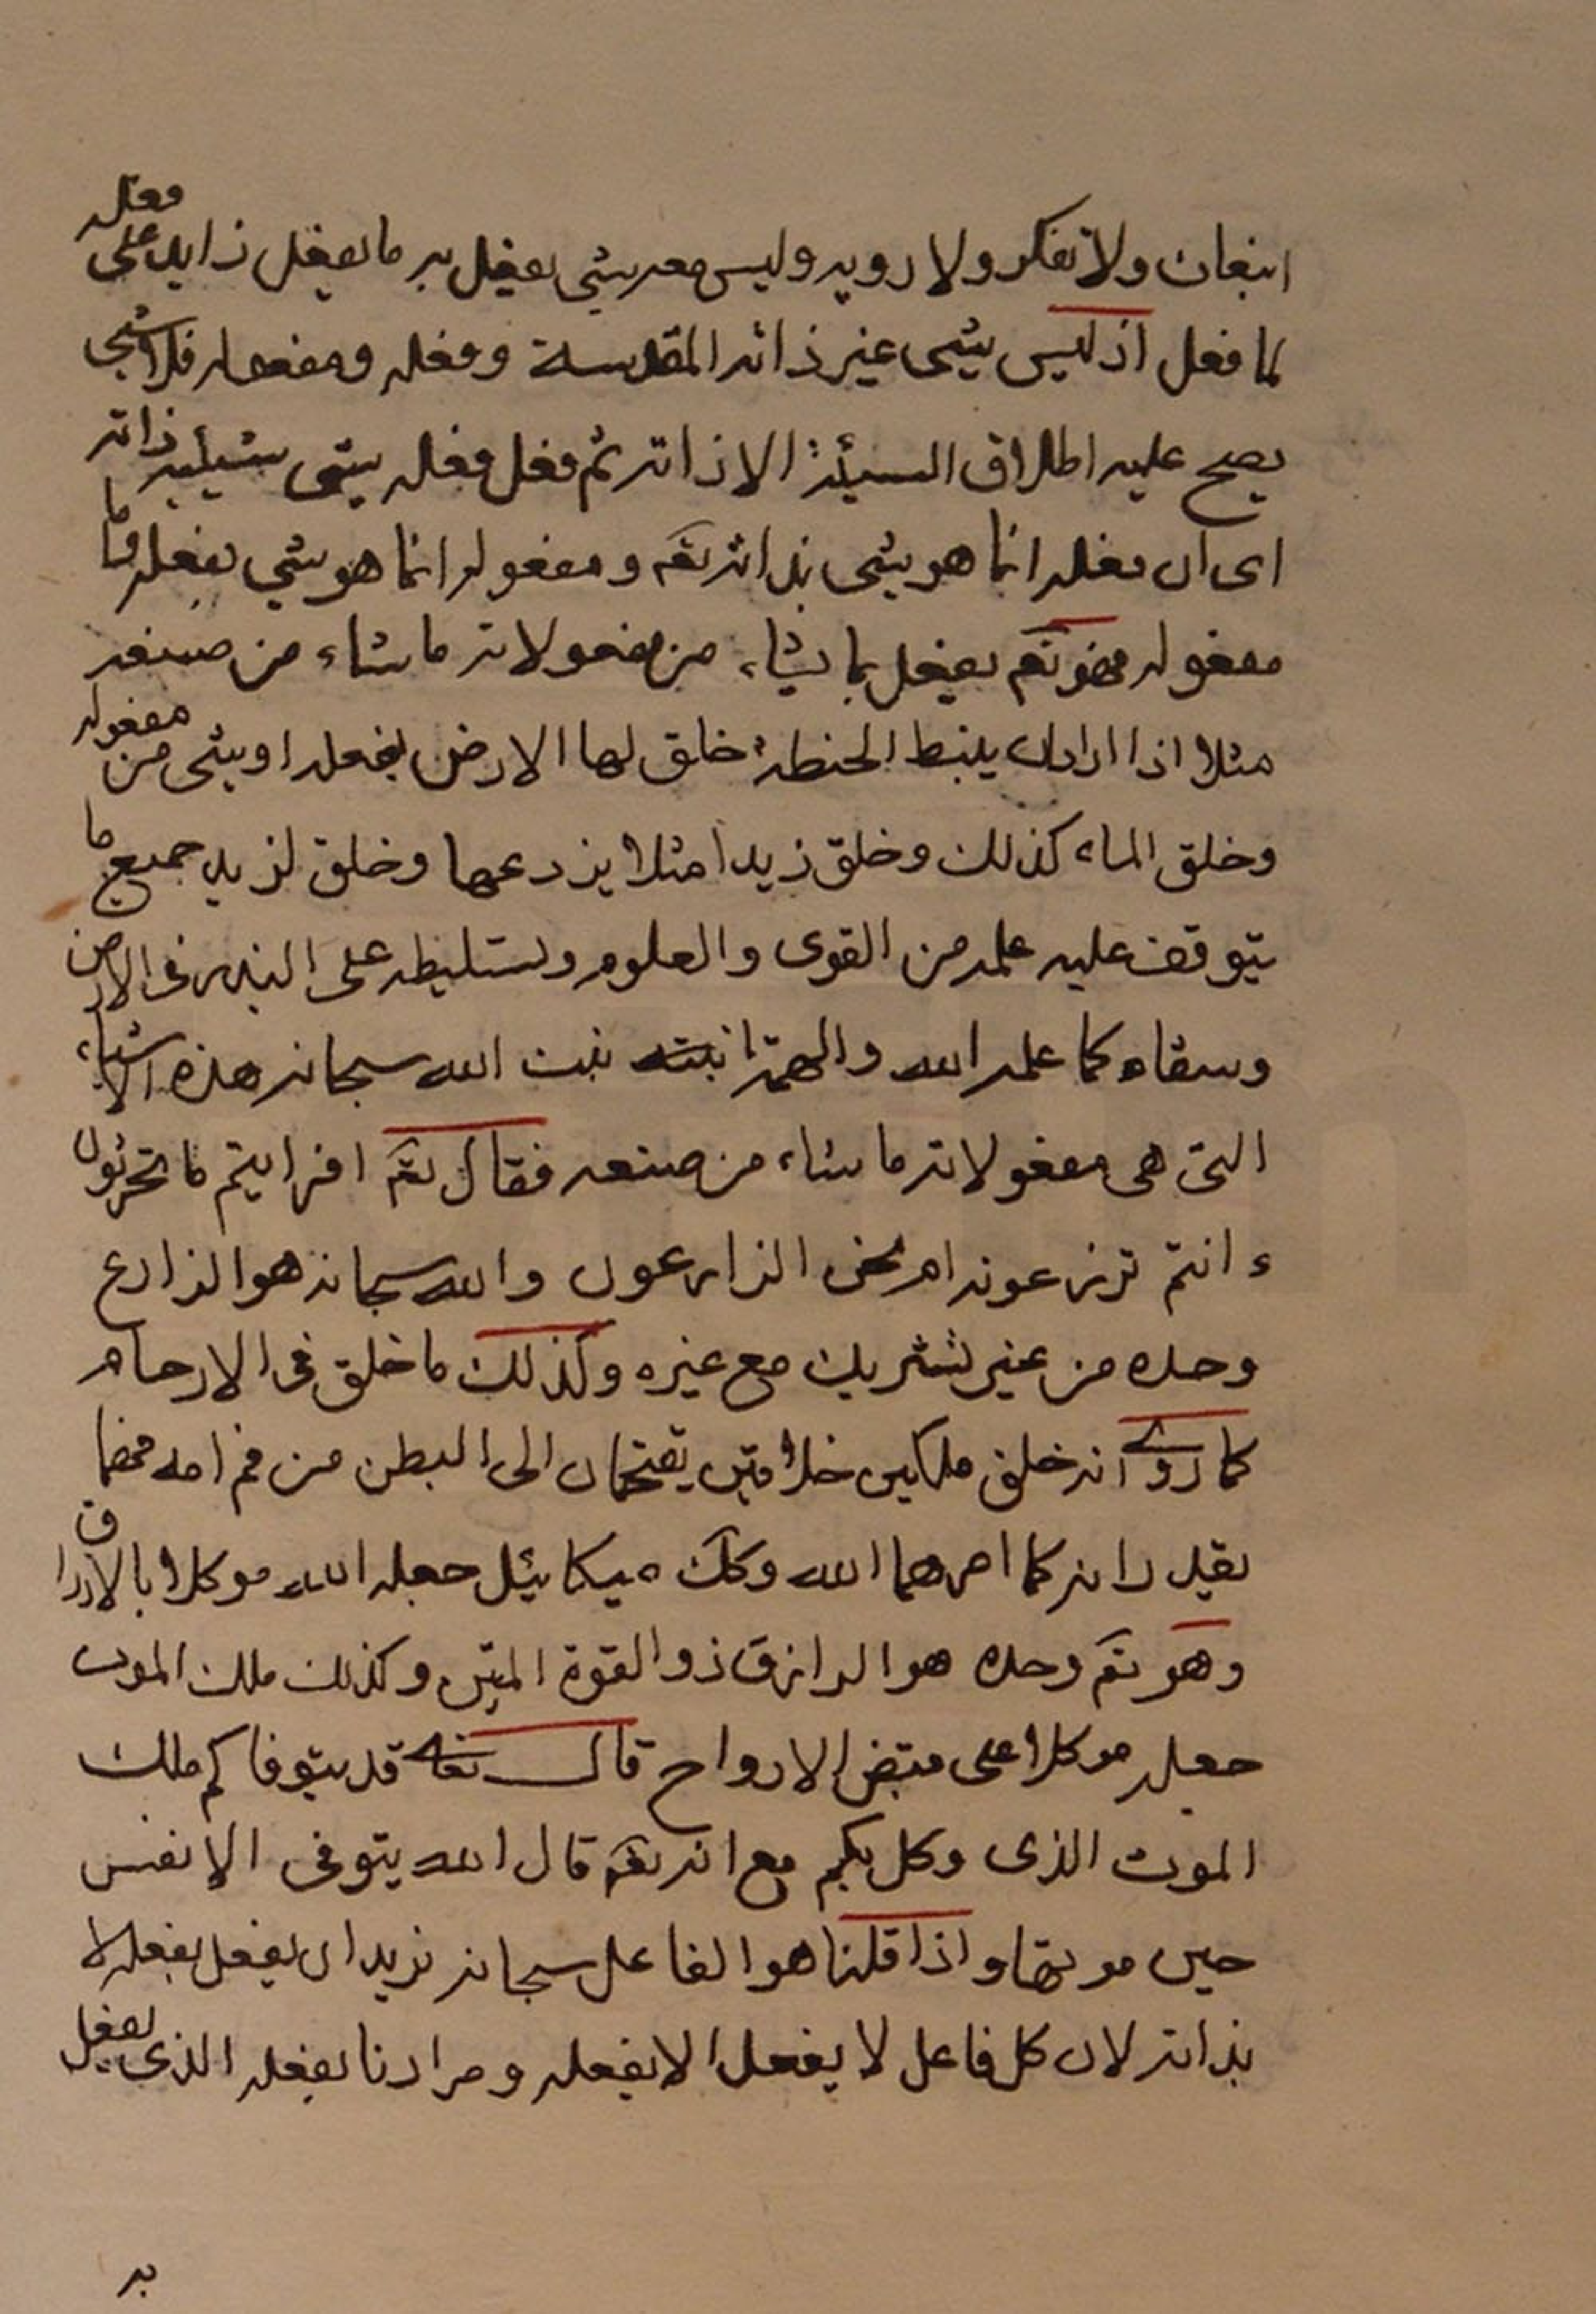 انبعاث ولا تفكر ولا رويه وليس معه شئ يفعل به ما يفعل زايد على فعله
لما فعل اذ ليس شئ غير ذاته المقدسة وفعله ومفعوله فلا شئ
يصح عليه اطلاق الشيئة الا ذاته ثم فعل فعله شئ بشيئية ذاته
اى ان فعله انما هو شئ بذاته تعَ ومفعوله انما هو شئ بفعله وما
مفعوله فهو تعَ يفعل بما يشاء من مفعولاته ما شاء من صنعه
مثلا اذا اراد ان ينبط الحنطة خلق لها الارض بفعله او بشئ من مفعوله
وخلق الماء كذلك وخلق زيدا مثلا يزرعها وخلق لزيد جميع ما
يتوقف عليه علمه من القوى والعلوم وتسليطه على البذر فى الارض
وسقاه كما علمه الله والهمه انبته نبت الله سبحانه هذه الاشياء
التى هى مفعولاته ما شاء من صنعه فقال تعَ افرايتم ما تحرثون
ء انتم تزرعونه ام نحن الزارعون والله سبحانه هو الزارع
وحده من غير تشريك مع غيره وكذلك ما خلق فى الارحام
كما روى انه خلق ملكين خلاقين يقتحمان الى البطن من فم امه فهما
يقدرانه كما امرهما الله وكك ميكائيل جعله الله موكلا بالارزاق
وهو تعَ وحده هو الرازق ذو القوة المتين وكذلك ملك الموت
جعله موكلا على قبض الارواح قال تعَه قد يتوفاكم ملك
الموت الذى وكل بكم مع انه تعَ قال الله يتوفى الانفس
حين موتها واذا قلنا هو الفاعل سبحانه نريد ان يفعل بفعله لا
بذاته لان كل فاعل لا يفعل الا بفعله ومرادنا بفعله الذى يفعل
به